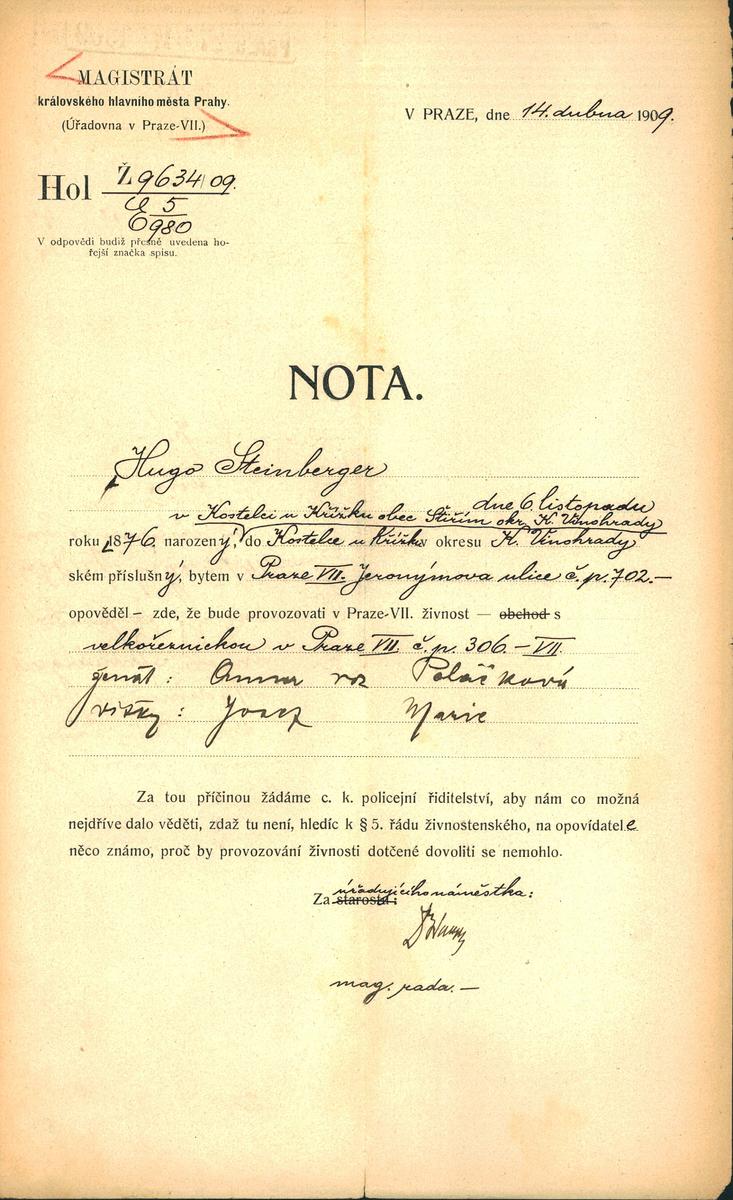 MAGISTRÁT
královského hlavního města Prahy.
(Úřadovna v Praze-VII.)
V PRAZE, dne 14. dubna 1909.
Hol Ž 9634/09.
E 5
980
V odpovědi budiž přesně uvedena ho-
řejší značka spisu.
NOTA.
Hugo Steinberger
dne 6. listopadu
v Kostelci u Křížku obec Štiřím okr. K. Vinohrady
roku 1876 narozený, do Kostelce u Křížku v okresu K. Vinohrady
ském příslušný, bytem v Praze VII. Jeronýmova ulice č. p. 702.—
opověděl – zde, že bude provozovati v Praze-VII. živnost — obchod s
velkořeznickou v Praze VII. č. p. 306.–VII.
ženat: Anna roz Poláčková
Josef Marie
Za tou příčinou žádáme c. k. policejní řiditelství, aby nám co možná
nejdříve dalo věděti, zdaž tu není, hledíc k § 5. řádu živnostenského, na opovídatele
něco známo, proč by provozování živnosti dotčené dovoliti se nemohlo.
úřadujícího náměstka:
Za starosta:
mag. rada.—